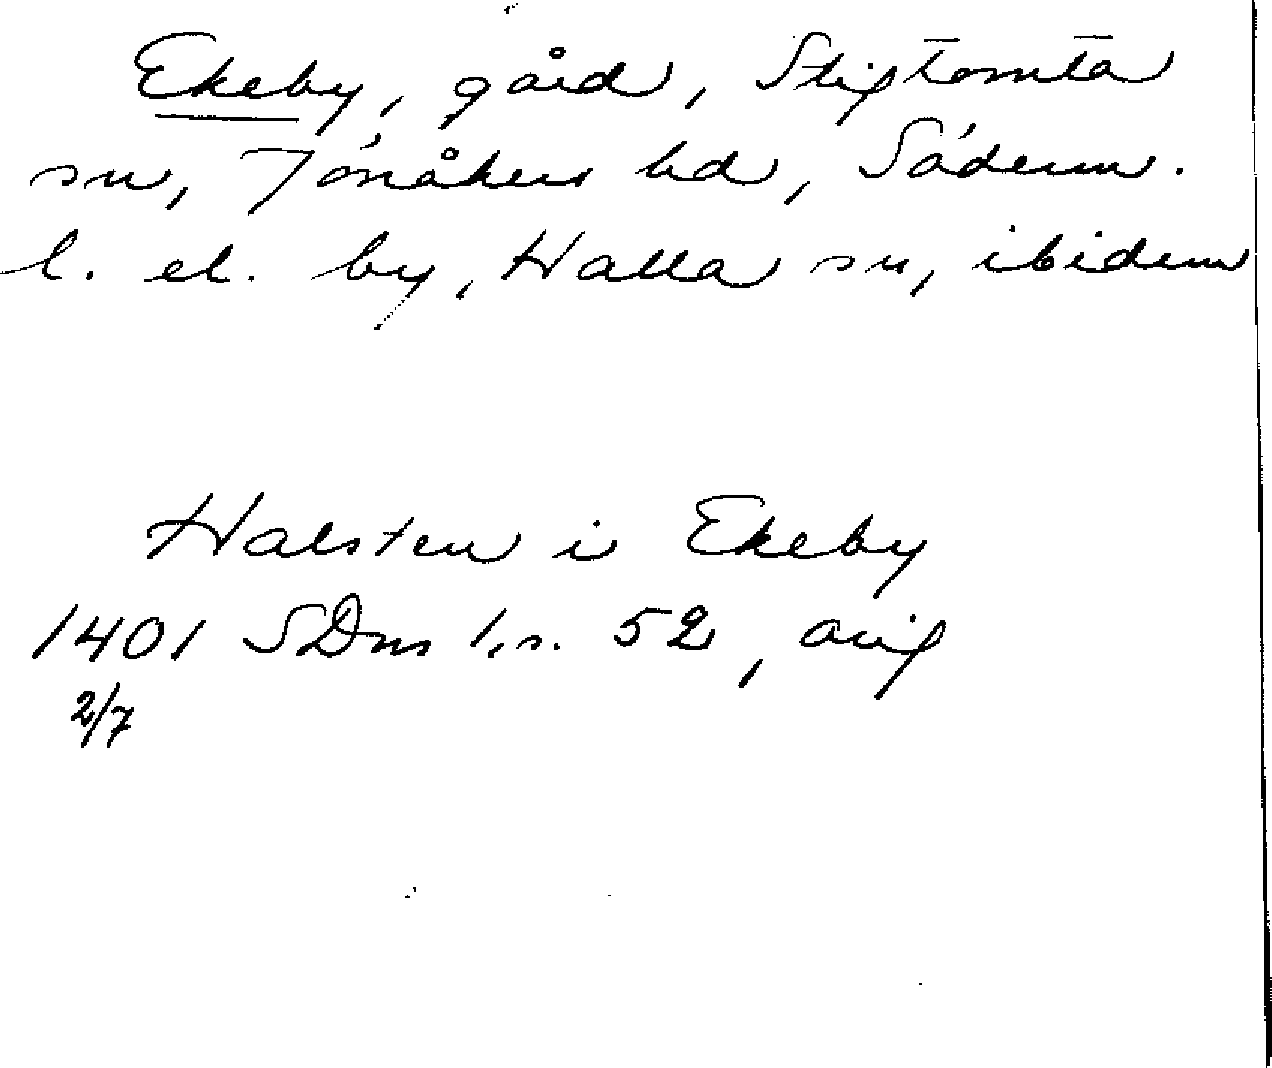 Ekeby, gård, Stigtomta
sn, Jönåkers hd, Söderm.
l. el. by, Halla sn, ibidem
Halsten i Ekeby
1401 SDns 1, s. 52, orig
2/7